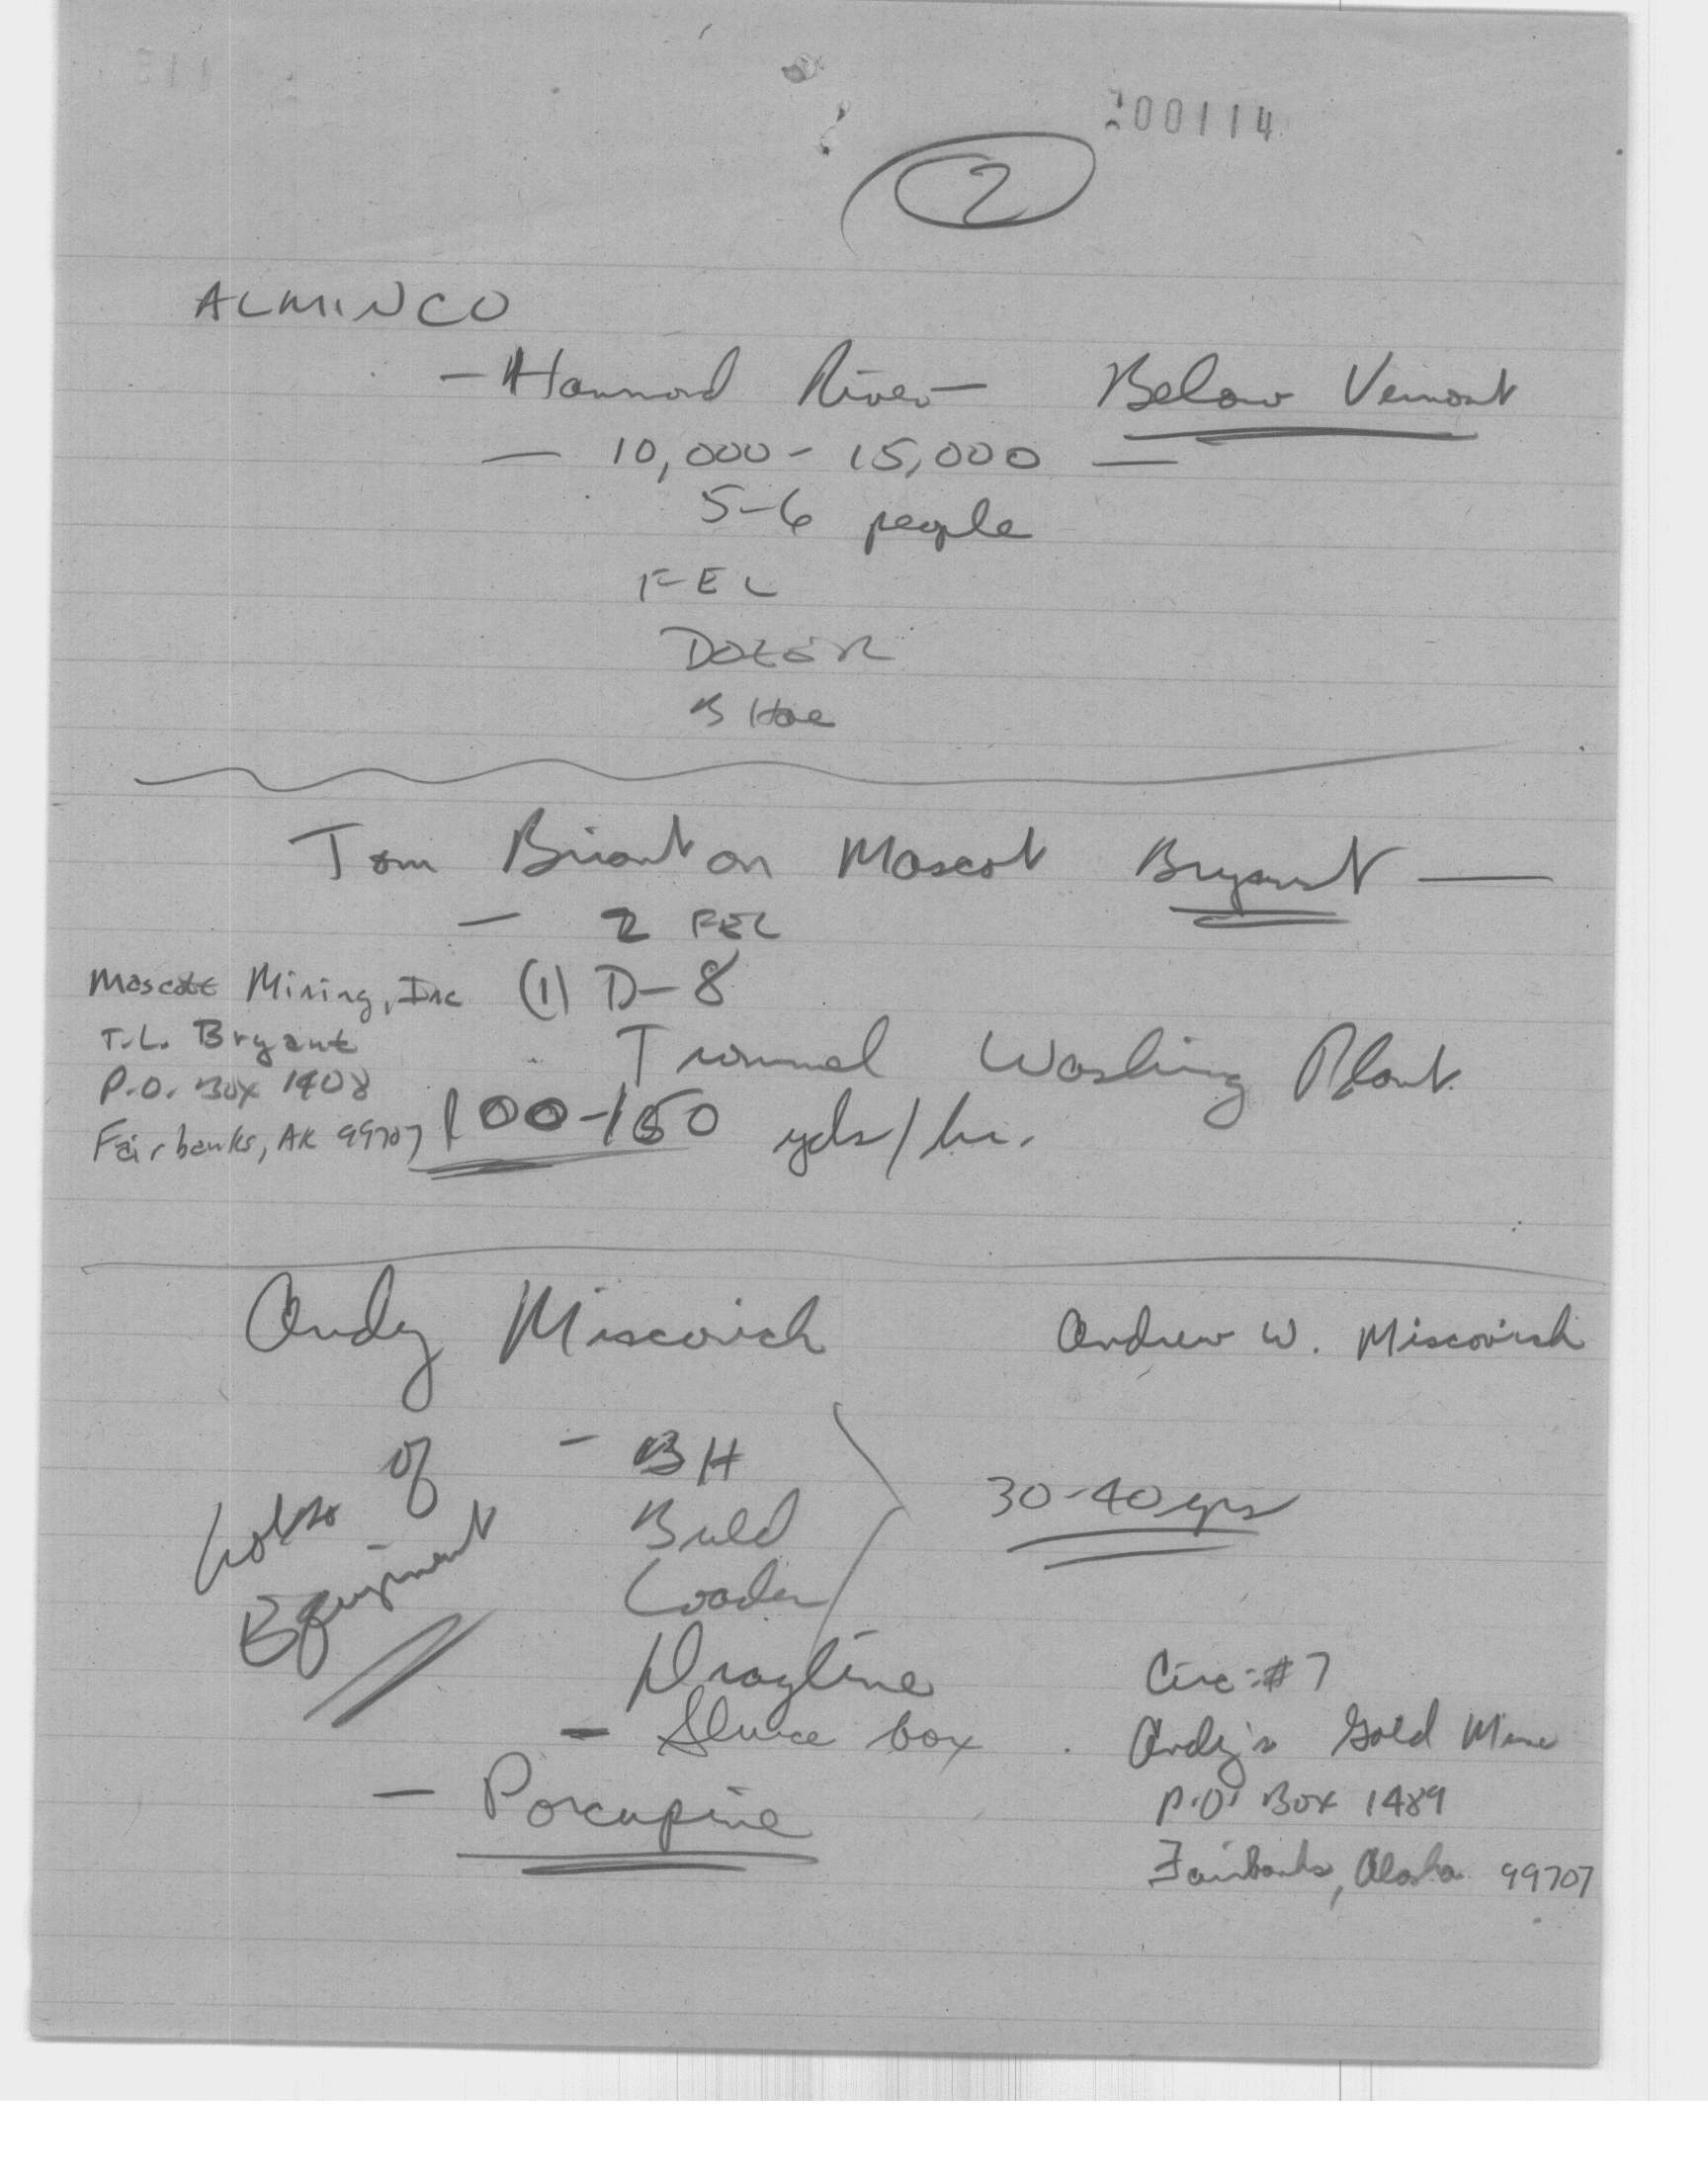 200114
2
ALMINCO
- Hammond River - Below Vermont
- 10,000 - 15,000 -
5-6 people
FEL
DOZER
B Hoe
Tom Briant on Mascot Bryant -
- 2 FEL
Mascott Mining, Inc (1) D-8
T.L. Bryant
Trommel Washing Plant
P.O. Box 1408
Fairbanks, AK 99707 100-150 yds/hr.
Andy Miscovich Andrew W. Miscovich
Lots of Equipment
- BH
Buld
Loader
30-40 yrs
Dragline
- Sluice box
- Porcupine
Circ: #7
Andy's Gold Mine
P.O. Box 1489
Fairbanks, Alaska 99707